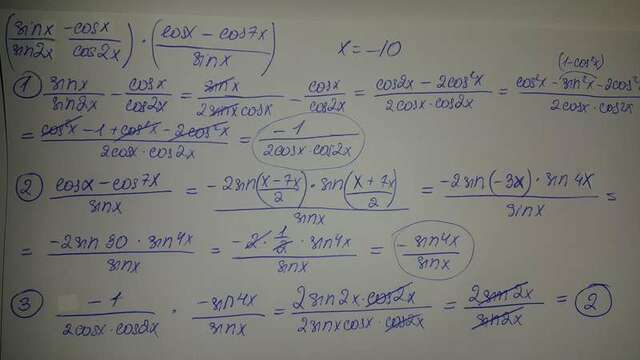 (sinx/sin2x - cosx/cos2x) · (cosx - cos7x/sinx) x = -10
(1-cos²x)
① sinx/sin2x - cosx/cos2x = sinx/2sinx cosx - cosx/cos2x = cos2x - 2cos²x/2cosx·cos2x = cos²x - sin²x - 2cos²x/2cosx·cos2x
= cos²x - 1 + cos²x - 2cos²x/2cosx·cos2x = -1/2cosx·cos2x
② cosx - cos7x/sinx = -2sin(x-7x/2)·sin(x+7x/2)/sinx = -2sin(-3x)·sin4x/sinx =
= -2sin30·sin4x/sinx = -2·1/2·sin4x/sinx = -sin4x/sinx
③ -1/2cosx·cos2x · -sin4x/sinx = 2sin2x·cos2x/2sinxcosx·cos2x = 2sin2x/sin2x = ②